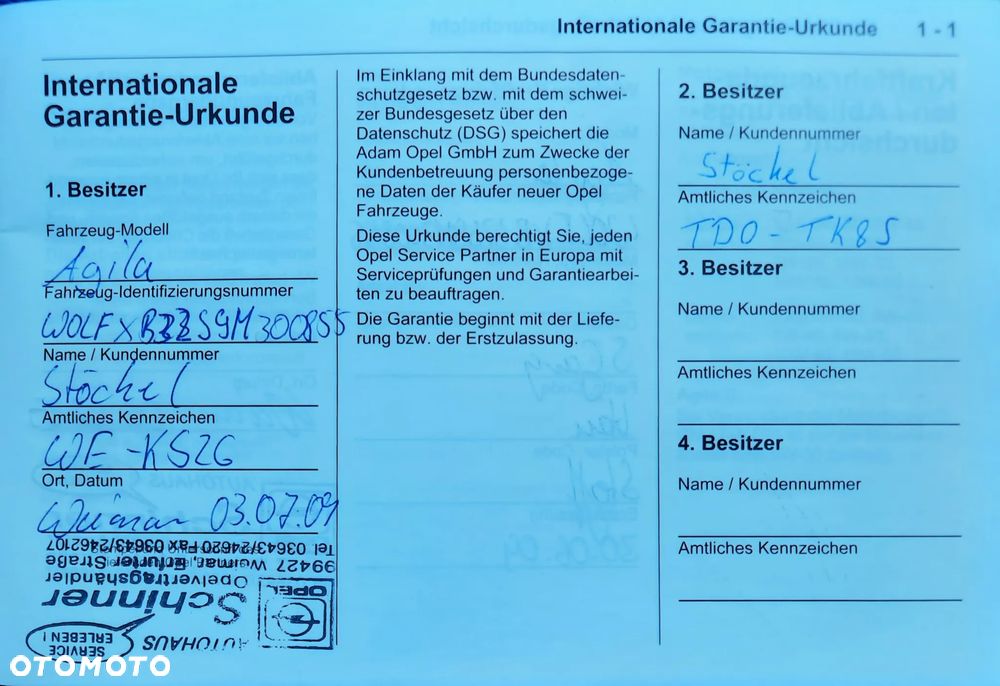 Internationale Garantie-Urkunde 1 - 1
Internationale
Garantie-Urkunde
1. Besitzer
Fahrzeug-Modell
Agila
Fahrzeug-Identifizierungsnummer
Name / Kundennummer
Stöckel
Amtliches Kennzeichen
WE-KS26
Ort, Datum
Weimar 03.07.09
Tel 03643/24620 Fax 03643/2462107
99427 Weimar, Erfurter Straße
Opelvertragshändler
Schinner
OPEL
AUTOHAUS
SERVICE
ERLEBEN!
Im Einklang mit dem Bundesdaten-
schutzgesetz bzw. mit dem schwei-
zer Bundesgesetz über den
Datenschutz (DSG) speichert die
Adam Opel GmbH zum Zwecke der
Kundenbetreuung personenbezoge-
ne Daten der Käufer neuer Opel
Fahrzeuge.
Diese Urkunde berechtigt Sie, jeden
Opel Service Partner in Europa mit
Serviceprüfungen und Garantiearbei-
ten zu beauftragen.
Die Garantie beginnt mit der Liefe-
rung bzw. der Erstzulassung.
2. Besitzer
Name / Kundennummer
Stöckel
Amtliches Kennzeichen
TDO-TK85
3. Besitzer
Name / Kundennummer
Amtliches Kennzeichen
4. Besitzer
Name / Kundennummer
Amtliches Kennzeichen
OTOMOTO